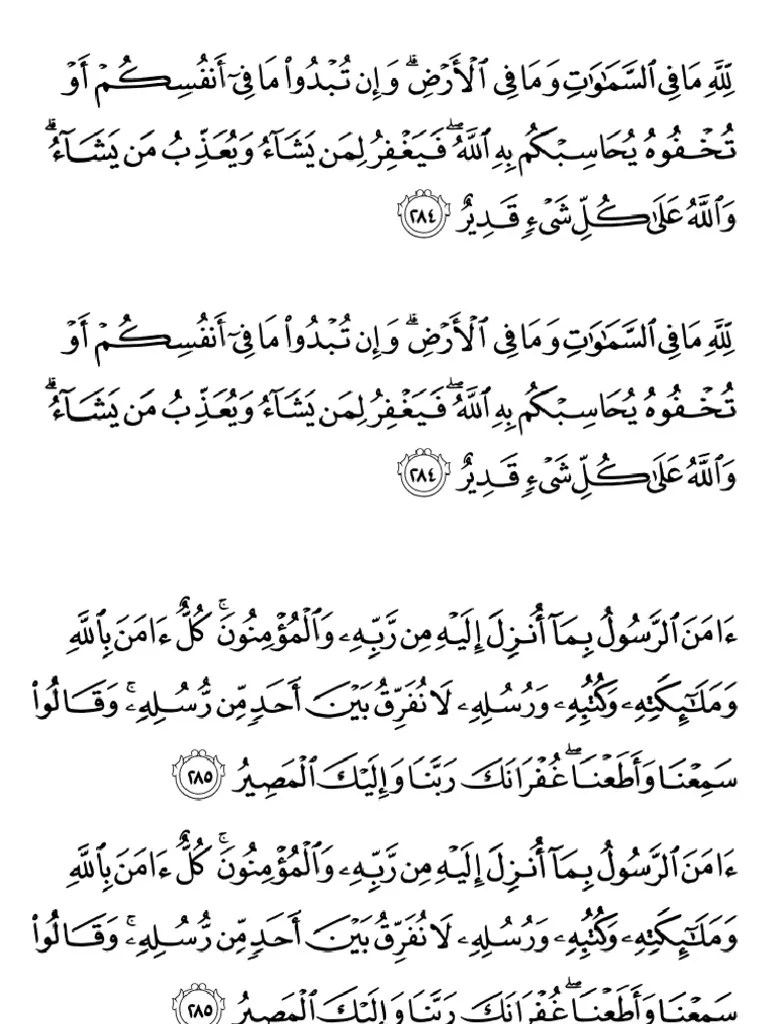 لِّلَّهِ مَا فِي ٱلسَّمَٰوَٰتِ وَمَا فِي ٱلۡأَرۡضِۗ وَإِن تُبۡدُواْ مَا فِيٓ أَنفُسِكُمۡ أَوۡ
تُخۡفُوهُ يُحَاسِبۡكُم بِهِ ٱللَّهُۖ فَيَغۡفِرُ لِمَن يَشَآءُ وَيُعَذِّبُ مَن يَشَآءُۗ
وَٱللَّهُ عَلَىٰ كُلِّ شَيۡءٖ قَدِيرٌ ٢٨٤
لِّلَّهِ مَا فِي ٱلسَّمَٰوَٰتِ وَمَا فِي ٱلۡأَرۡضِۗ وَإِن تُبۡدُواْ مَا فِيٓ أَنفُسِكُمۡ أَوۡ
تُخۡفُوهُ يُحَاسِبۡكُم بِهِ ٱللَّهُۖ فَيَغۡفِرُ لِمَن يَشَآءُ وَيُعَذِّبُ مَن يَشَآءُۗ
وَٱللَّهُ عَلَىٰ كُلِّ شَيۡءٖ قَدِيرٌ ٢٨٤
ءَامَنَ ٱلرَّسُولُ بِمَآ أُنزِلَ إِلَيۡهِ مِن رَّبِّهِۦ وَٱلۡمُؤۡمِنُونَۚ كُلٌّ ءَامَنَ بِٱللَّهِ
وَمَلَٰٓئِكَتِهِۦ وَكُتُبِهِۦ وَرُسُلِهِۦ لَا نُفَرِّقُ بَيۡنَ أَحَدٖ مِّن رُّسُلِهِۦۚ وَقَالُواْ
سَمِعۡنَا وَأَطَعۡنَاۖ غُفۡرَانَكَ رَبَّنَا وَإِلَيۡكَ ٱلۡمَصِيرُ ٢٨٥
ءَامَنَ ٱلرَّسُولُ بِمَآ أُنزِلَ إِلَيۡهِ مِن رَّبِّهِۦ وَٱلۡمُؤۡمِنُونَۚ كُلٌّ ءَامَنَ بِٱللَّهِ
وَمَلَٰٓئِكَتِهِۦ وَكُتُبِهِۦ وَرُسُلِهِۦ لَا نُفَرِّقُ بَيۡنَ أَحَدٖ مِّن رُّسُلِهِۦۚ وَقَالُواْ
سَمِعۡنَا وَأَطَعۡنَاۖ غُفۡرَانَكَ رَبَّنَا وَإِلَيۡكَ ٱلۡمَصِيرُ ٢٨٥